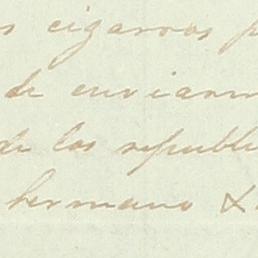 s cigarros p
de enviarm
de las republi
hermano &.